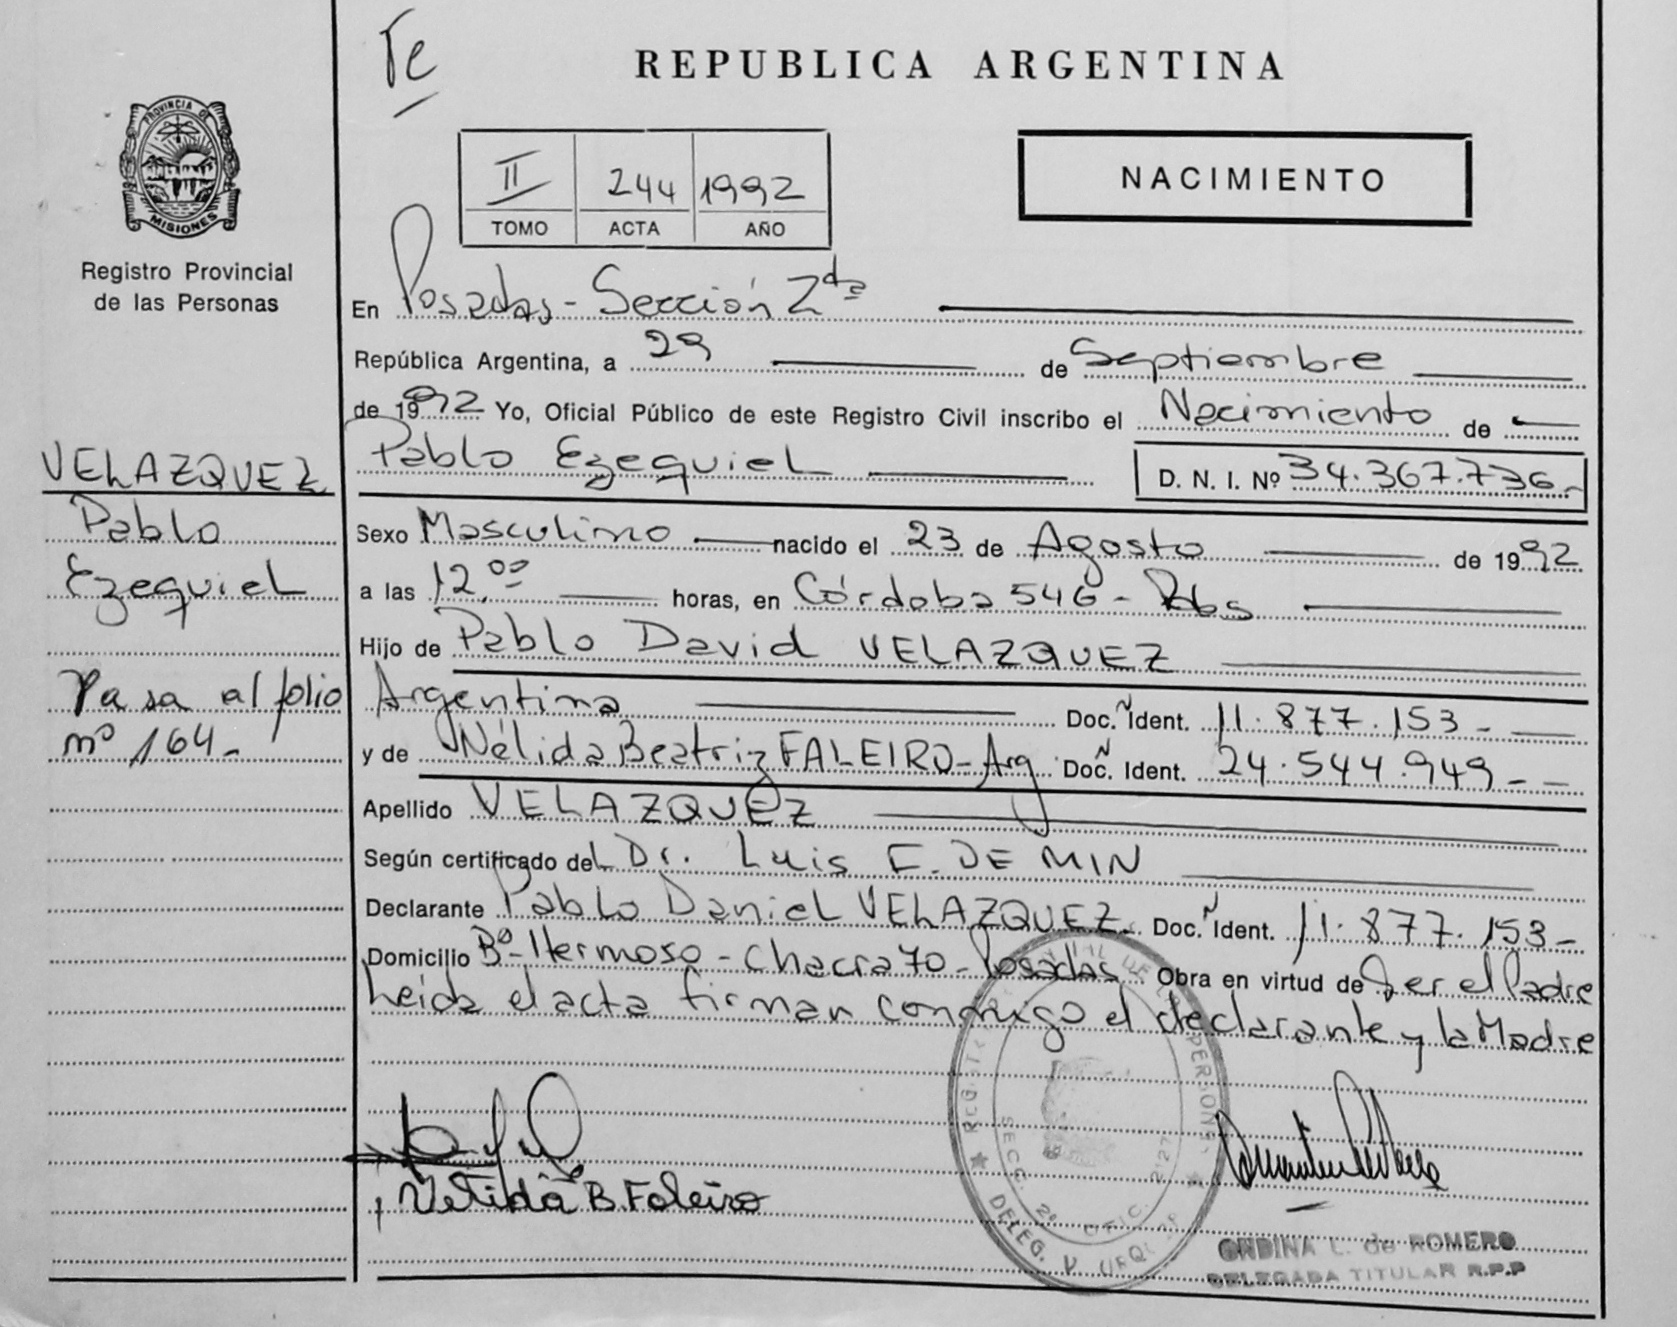 Te
REPUBLICA ARGENTINA
PROVINCIA DE
MISIONES
Registro Provincial
de las Personas
II 244 1992
TOMO ACTA AÑO
NACIMIENTO
En Posadas - Sección 2da
República Argentina, a 29 de Septiembre
de 1992 Yo, Oficial Público de este Registro Civil inscribo el Nacimiento de
Pablo Ezequiel D. N. I. Nº 34.367.736.-
VELAZQUEZ
Pablo
Ezequiel
Pasa al folio
nº 164-
Sexo Masculino nacido el 23 de Agosto de 1992
a las 12,00 horas, en Córdoba 546 - Pdas
Hijo de Pablo David VELAZQUEZ
Argentina Doc. Ident. 11.877.153-
y de Nélida Beatriz FALEIRO - Arg. Doc. Ident. 24.544.949-
Apellido VELAZQUEZ
Según certificado del Dr. Luis E. DE MIN
Declarante Pablo Daniel VELAZQUEZ. Doc. Ident. 11.877.153-
Domicilio Bº- Hermoso - Chacra 70 - Posadas Obra en virtud de Ser el Padre
Leida el acta firman conmigo el declarante y la Madre
Nelida B. Faleiro
SECC. 2º OFIC.
DELEG. V. URQ
ONDINA L. de ROMERO
DELEGADA TITULAR R.P.P